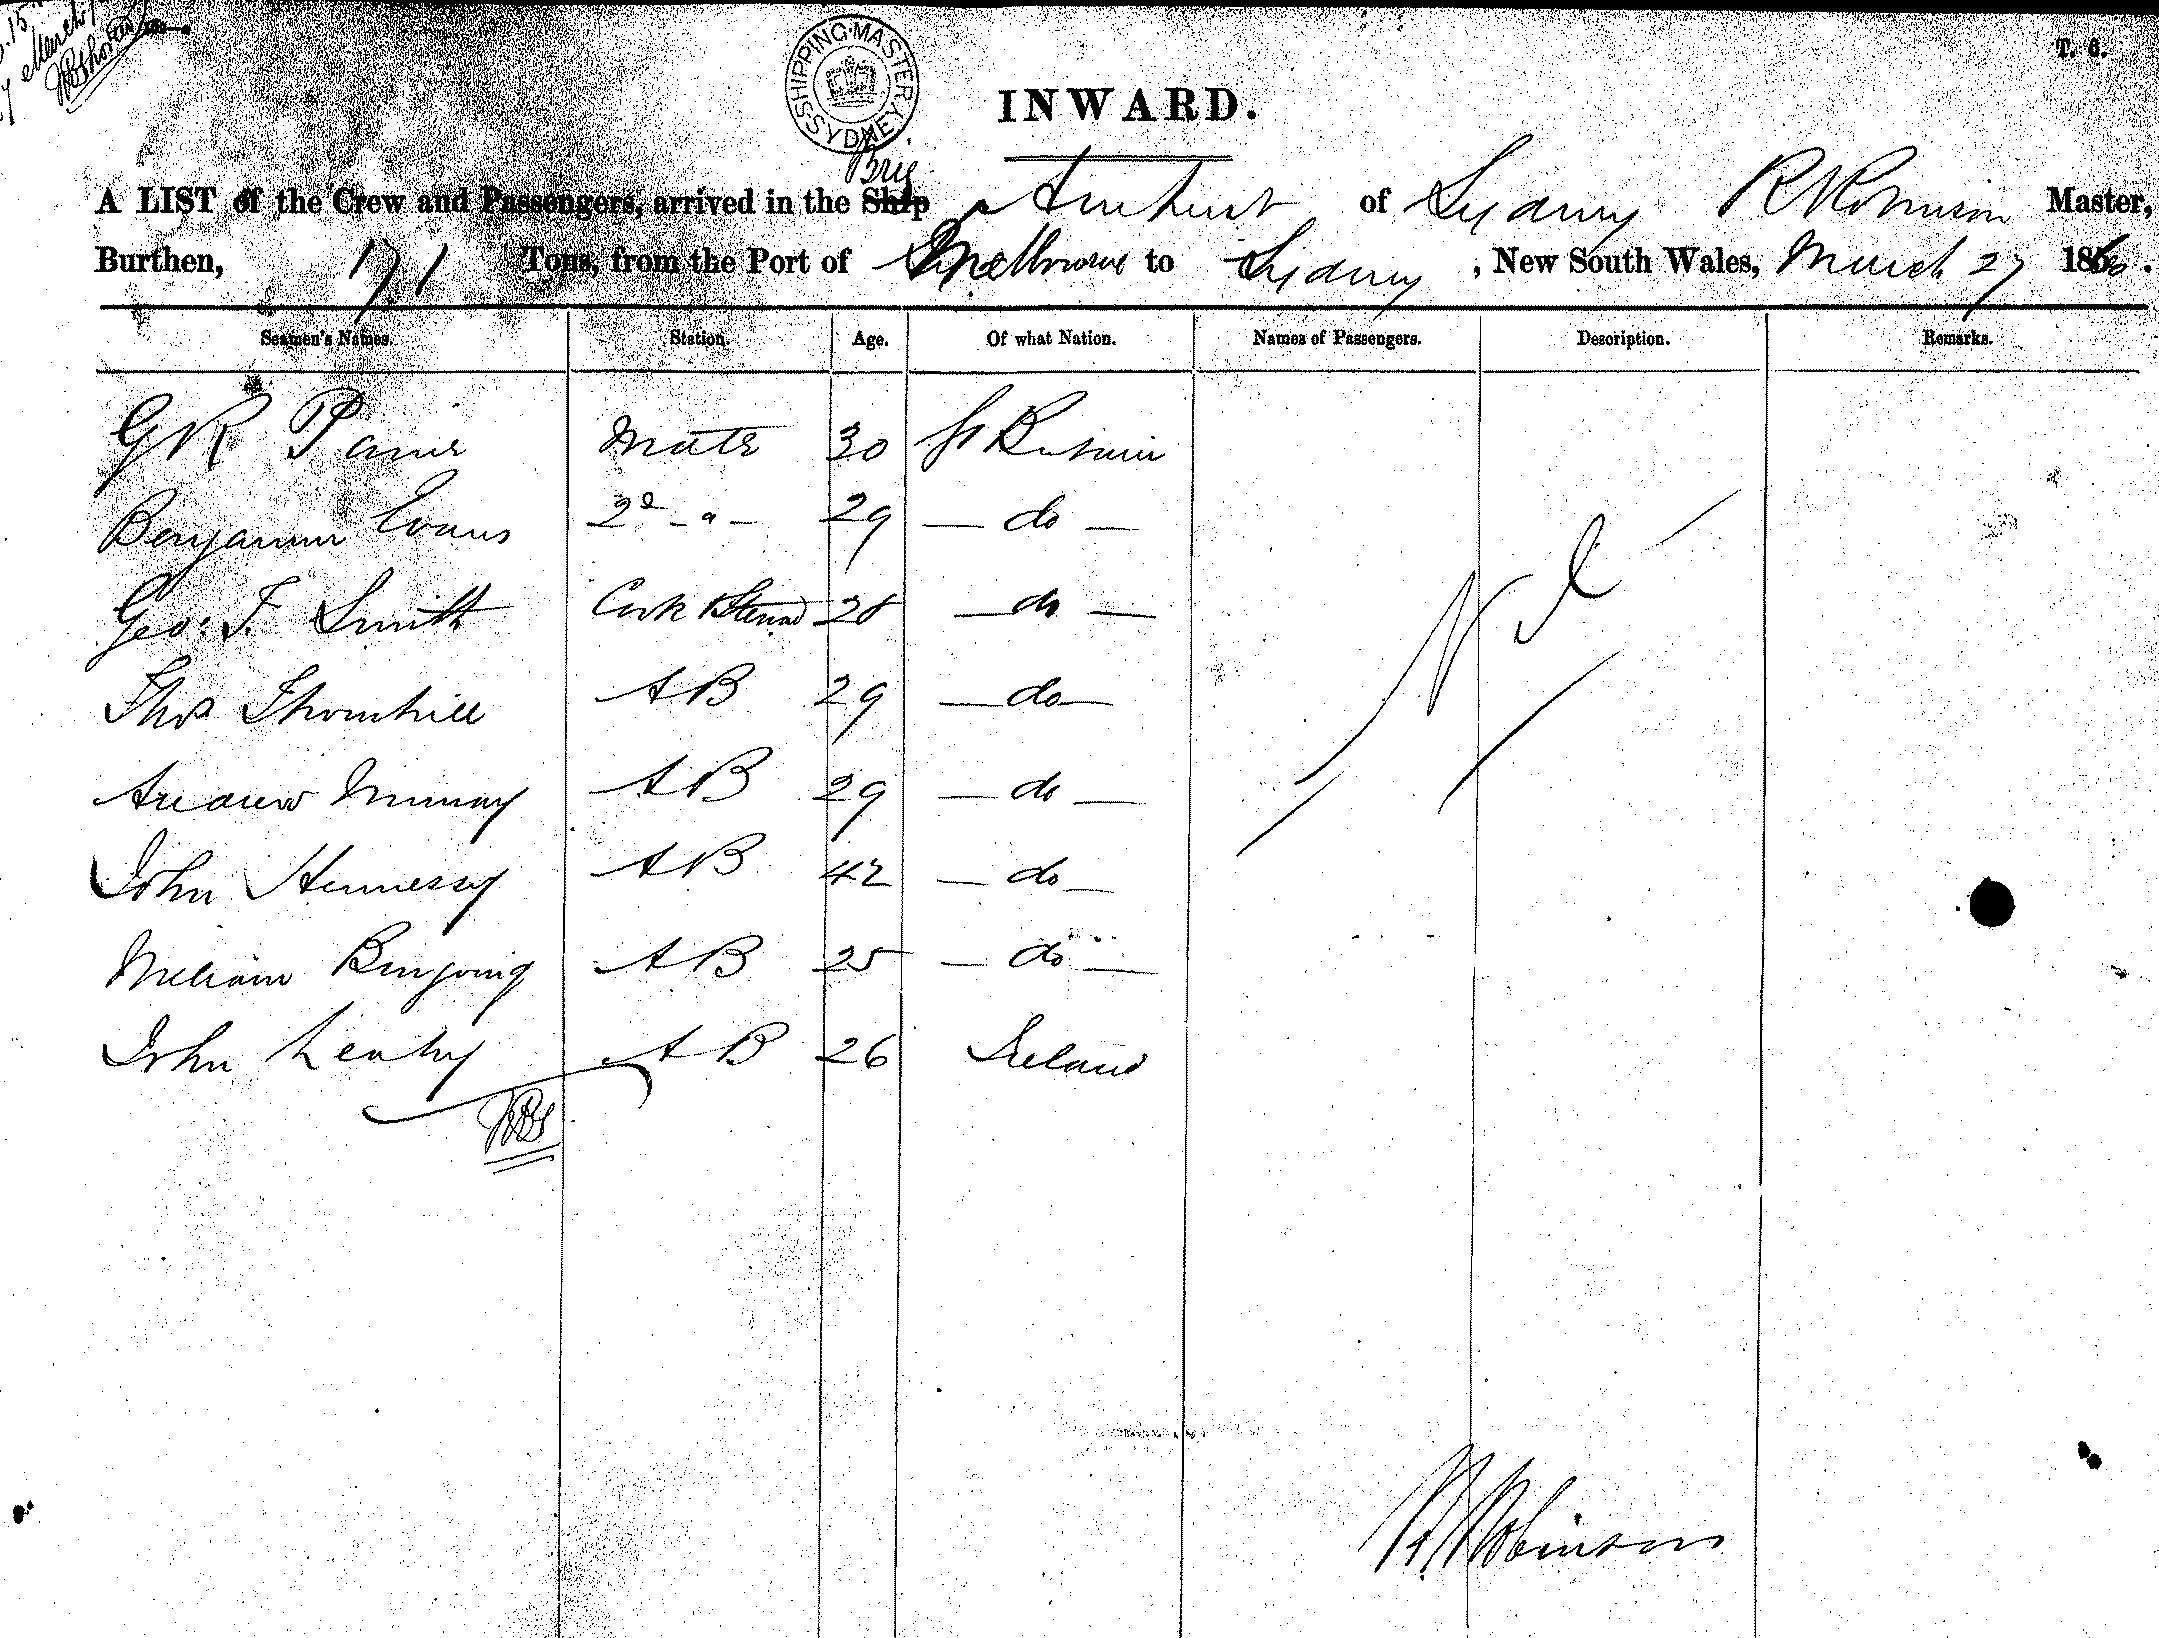 T. 6.
SHIPPING MASTER SYDNEY
INWARD.
Brig
A LIST of the Crew and Passengers, arrived in the Ship Amherst of Sydney R Robinson Master,
Burthen, 171 Tons, from the Port of Melbourne to Sydney, New South Wales, March 27 1860.
Seamen's Names. Station. Age. Of what Nation. Names of Passengers. Description. Remarks.
G R Mate 30 Gt Britain
Benjamin Evans 2d - " - 29 - do -
Geo. F. Smith Cook & Steward 28 - do -
Thos Thornhill AB 29 - do -
Nil
Andrew Murray AB 29 - do -
John Hennessy AB 42 - do -
William AB 25 - do -
John Leahy AB 26 Ireland
R Robinson